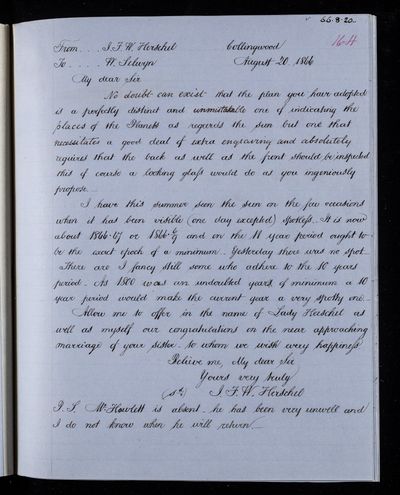 66.8.20.
16H
From . . . J.F.W. Herschel Collingwood
To . . . . W. Selwyn August 20. 1866
My dear Sir
No doubt can exist that the plan you have adopted
is a perfectly distinct and unmistakable one of indicating the
places of the Planets as regards the sun but one that
necessitates a good deal of extra engraving and absolutely
requires that the back as well as the front should be inspected
this of course a looking glass would do as you ingeniously
propose.—
I have this summer seen the sun on the few occasions
when it has been visible (one day excepted) spotless. It is now
about 1866. or 1866. and on the 11 year period ought to
be the exact epoch of a minimum. Yesterday there was no spot.
There are I fancy still some who adhere to the 10 years
period. As 1800 was an undoubted year of minimum a 10
year period would make the current year a very spotty one.—
Allow me to offer in the name of Lady Herschel as
well as myself our congratulations on the near approaching
marriage of your sister. to whom we wish every happiness
Believe me, My dear Sir
Yours very truly
(sd) J.F.W. Herschel
P.S. Mr Howlett is absent. he has been very unwell and
I do not know when he will return.—